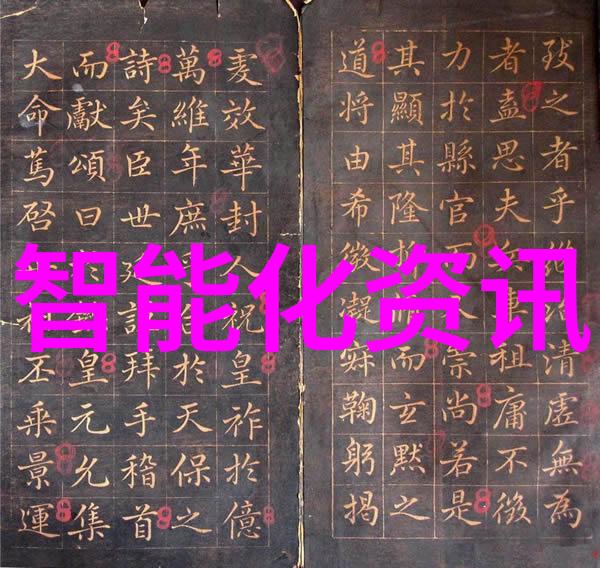 智能化资讯
之者乎從治清虛無為
者盍思夫兵車租庸不徵
力於縣官而又崇尚若是
其顯其隆而玄默之
道將由希微凝寂鞠躬揭
效華封人祝皇祚於億
萬維年庶乎合於天保之
詩矣臣世拜手稽首
而獻頌曰於皇元允集
大命篤啓丕乘景運